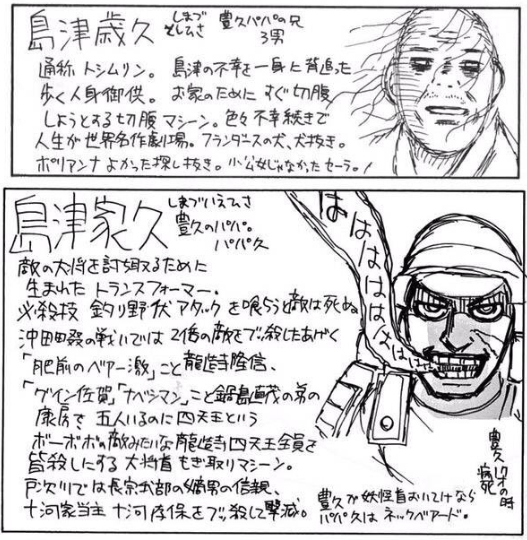 島津歳久
しまづ
としひさ
豊久パパの兄
3男
通称トシムリン。島津の不幸を一身に背追った
歩く人身御供。お家のために すぐ切腹
しようとする切腹マシーン。色々不幸続きで
人生が世界名作劇場。フランダースの犬、犬抜き。
ポリアンナ よかった探し抜き。小公女じゃなかったセーラ。!
島津家久
しまづいえひさ
豊久のパパ。
パパ久
敵の大将を討ち取るために
生まれた トランスフォーマー。
必殺技 釣り野伏アタックを喰らうと敵は死ぬ
沖田畷の戦いでは2倍の敵をブッ殺したあげく
「肥前のベアー激」こと龍造寺隆信、
「グイン佐賀」「ナベシマン」こと鍋島直茂の弟の
康房を 五人いるのに四天王という
ボーボボの敵みたいな龍造寺四天王全員を
皆殺しにする 大将首もぎ取りマシーン。
戸次川では長宗我部の嫡男の信親、
十河家当主 十河存保をブッ殺して撃滅。
ははははははははは
豊久17才の時
病死
豊久が妖怪首おいてけなら
パパ久はネックベアード。